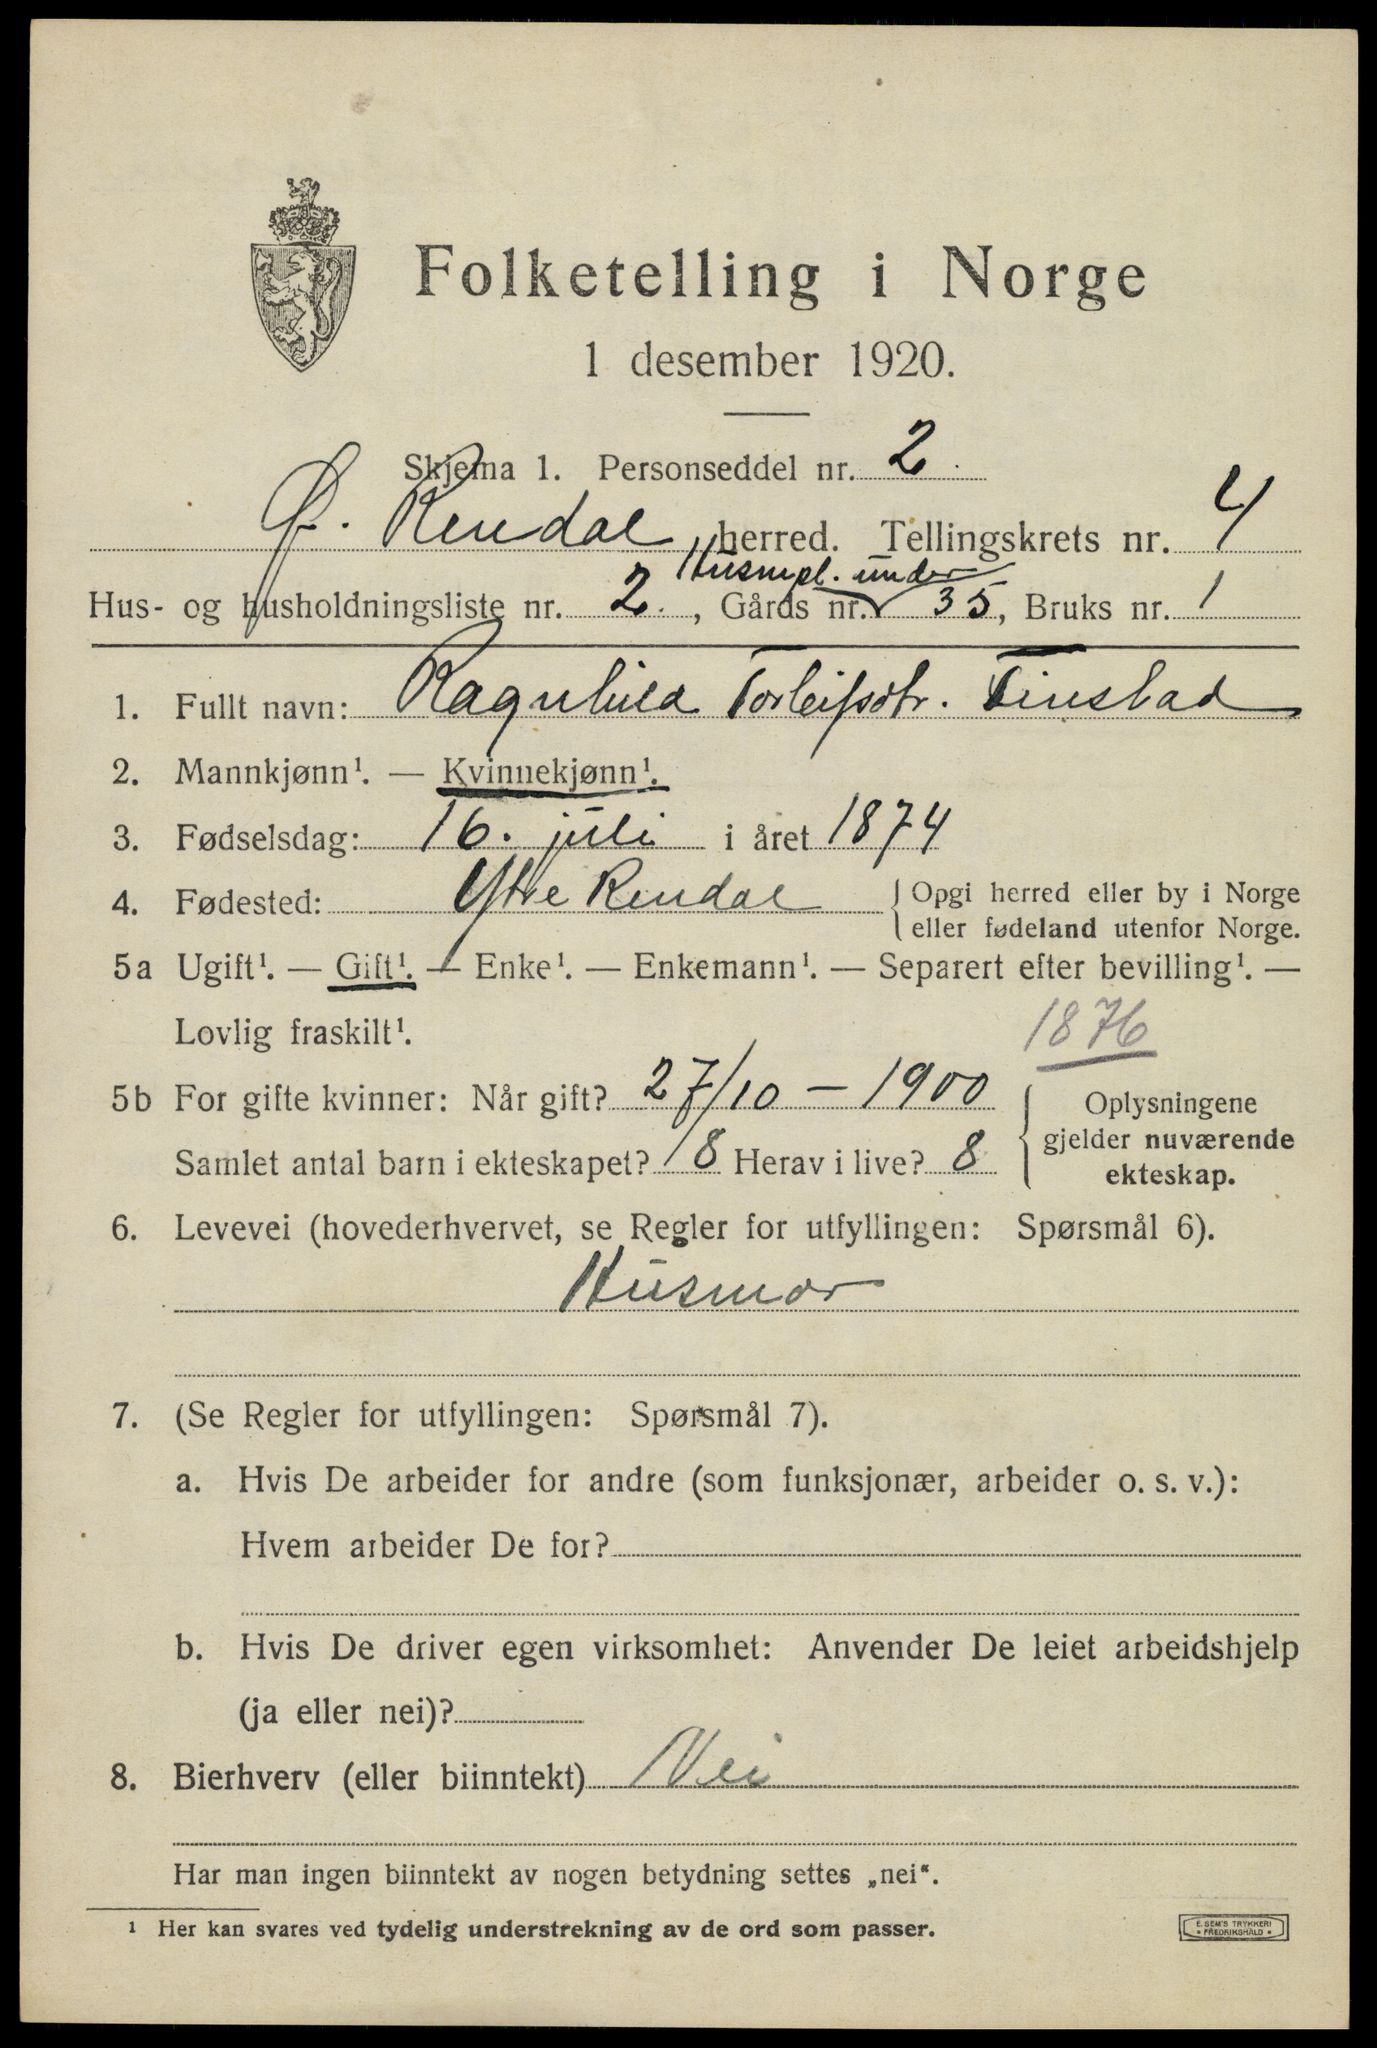 Folketelling i Norge
1 desember 1920.
Skjema 1. Personseddel nr. 2.
Ø. Rendal herred. Tellingskrets nr. 4
Husmpl. under
Hus- og husholdningsliste nr. 2., Gårds nr. 35, Bruks nr. 1
1. Fullt navn: Ragnhild Torleifsdtr. Finstad
2. Mannkjønn¹. — Kvinnekjønn¹.
3. Fødselsdag: 16. juli i året 1874
4. Fødested: Ytre Rendal { Opgi herred eller by i Norge
eller fødeland utenfor Norge.
5a Ugift¹. — Gift¹. — Enke¹. — Enkemann¹. — Separert efter bevilling¹. —
Lovlig fraskilt¹. 1876
5b For gifte kvinner: Når gift? 27/10 – 1900
Samlet antal barn i ekteskapet? 8 Herav i live? 8
Oplysningene
gjelder nuværende
ekteskap.
6. Levevei (hovederhvervet, se Regler for utfyllingen: Spørsmål 6).
Husmor
7. (Se Regler for utfyllingen: Spørsmål 7).
a. Hvis De arbeider for andre (som funksjonær, arbeider o. s. v.):
Hvem arbeider De for?
b. Hvis De driver egen virksomhet: Anvender De leiet arbeidshjelp
(ja eller nei)?
8. Bierhverv (eller biinntekt) Nei
Har man ingen biinntekt av nogen betydning settes „nei“.
¹ Her kan svares ved tydelig understrekning av de ord som passer.
E. SEM'S TRYKKERI
• FREDRIKSHALD •